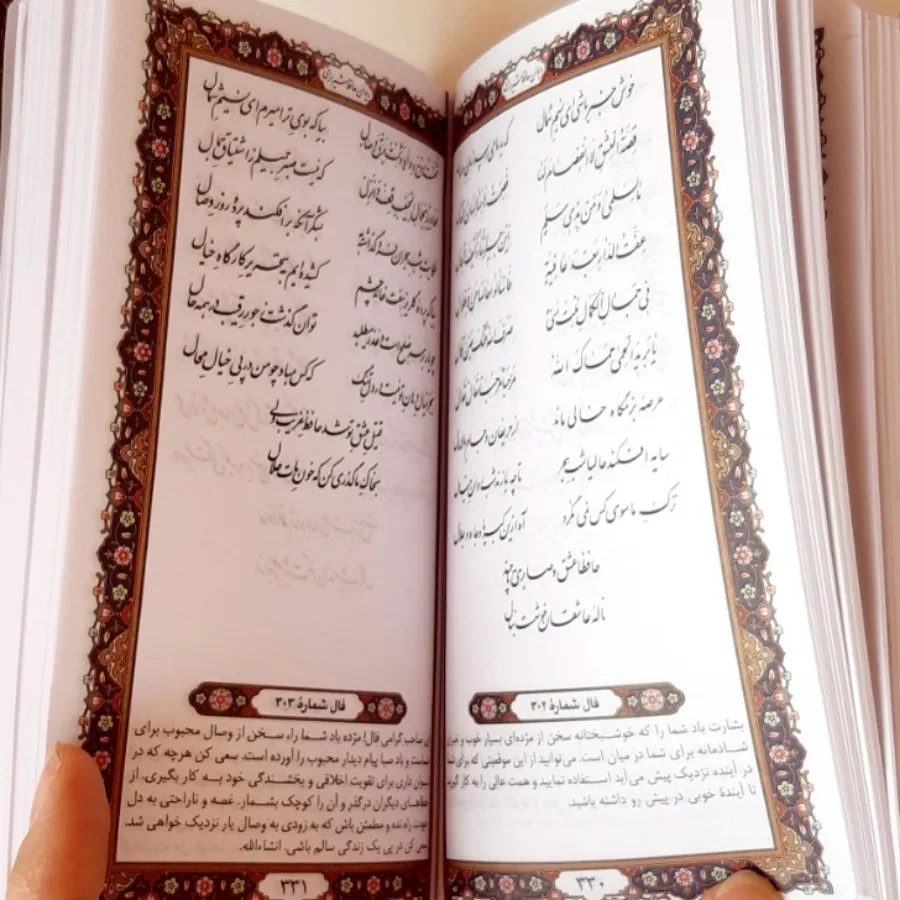 دیوان حافظ شیرازی
خوش خبر باشی ای نسیم شمال که به ما می‌رسد زمان وصال
قصّة العشق لا انفصام لها فصمت ها هنا لسان القال
ما لسلمی و من بذی سلم این جیراننا و کیف الحال
عفت الدار بعد عافیة فاسألوا حالها عن الاطلال
فی جمال الکمال نلت منی صرف الله عنک عین کمال
یا برید الحمی حماک الله مرحبا مرحبا تعال تعال
عرصه بزمگاه خالی ماند از حریفان و جام مالامال
سایه افکند حالیا شب هجر تا چه بازند شب روان خیال
ترک ما سوی کس نمی نگرد آه ازین کبریا و جاه و جلال
حافظا عشق و صابری تا چند
ناله عاشقان خوشست بنال
فال شمارهٔ ۳۰۲
بشارت باد شما را که خوشبختانه سخن از مژده‌ای بسیار خوب و خبری
شادمانه برای شما در میان است. می‌توانید از این موقعیتی که برای شما
در آینده نزدیک پیش می‌آید استفاده نمایید و همت عالی را به کار گیرید
تا آیندهٔ خوبی در پیش رو داشته باشید.
۳۳۰
دیوان حافظ شیرازی
شممت روح وداد و شمت برق وصال بیا که بوی ترا میرم ای نسیم شمال
احادیا بجمال الحبیب قف و انزل که نیست صبر جمیلم ز اشتیاق جمال
حکایت شب هجران فروگذاشته به بشکر آنکه برافکند پرده روز وصال
بیا که پرده گلریز هفت خانه چشم کشیده‌ایم بتحریر کارگاه خیال
چو یار بر سر صلح است و عذر می‌طلبد توان گذشت ز جور رقیب در همه حال
بجز خیال دهان تو نیست در دل تنگ که کس مباد چو من در پی خیال محال
قتیل عشق تو شد حافظ غریب ولی
بخاک ما گذری کن که خون مات حلال
فال شمارهٔ ۳۰۳
صاحب گرامی فال! مژده باد شما را، سخن از وصال محبوب برای
است و باد صبا پیام دیدار محبوب را آورده است. سعی کن هرچه که در
توان داری برای تقویت اخلاقی و بخشندگی خود به کار بگیری. از
خطاهای دیگران درگذر و آن را کوچک بشمار. غصه و ناراحتی به دل
خودت راه نده و مطمئن باش که به زودی به وصال یار نزدیک خواهی شد.
سعی کن در پی یک زندگی سالم باشی. انشاءالله.
۳۳۱